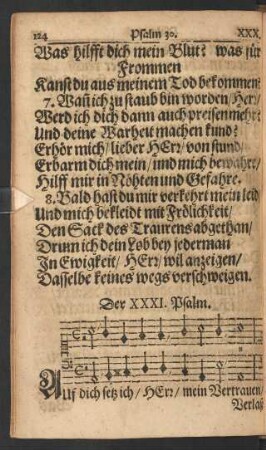 124 Psalm 30. XXX.
Was hilfft dich mein Blut? was für
Frommen
Kanst du aus meinem Tod bekommen?
7. Wañ ich zu staub bin worden / HErr /
Werd ich dich dann auch preisen mehr?
Und deine Warheit machen kund?
Erhör mich / lieber HErr / von stund /
Erbarm dich mein / und mich bewahre /
Hilff mir in Nöhten und Gefahre.
8. Bald hast du mir verkehrt mein leid
Und mich bekleidt mit Frölichkeit /
Den Sack des Traurens abgethan /
Drum ich dein Lob bey jederman
In Ewigkeit / HErr / wil anzeigen /
Dasselbe keines wegs verschweigen.
Der XXXI. Psalm.
AUf dich setz ich / HErr / mein Vertrauen /
Verlaß